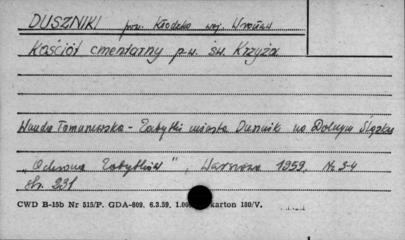 DUSZNIKI pow. Kłodzko woj. Wrocław
Kościół cmentarny p.w. św. Krzyża
Wanda Tomaszewska - Zabytki miasta Duszniki na Dolnym Śląsku
"Ochrona Zabytków", Warszawa 1959, Nr 3-4
str. 231
CWD B-15b Nr 515/P. GDA-809. 6.3.59. 1.000 karton 180/V.